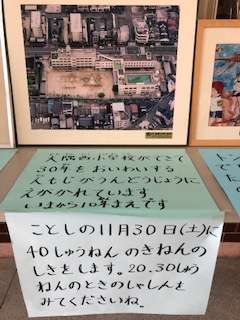 大隅西小学校ができて
30年をおいわいする
え もじがうんどうじょうに
えがかれています
いまから10年まえです
ことしの11月30日(土)に
40しゅうねん のきねんの
しきをします。20.30しゅう
ねんのときのしゃしんを
みてくださいね。